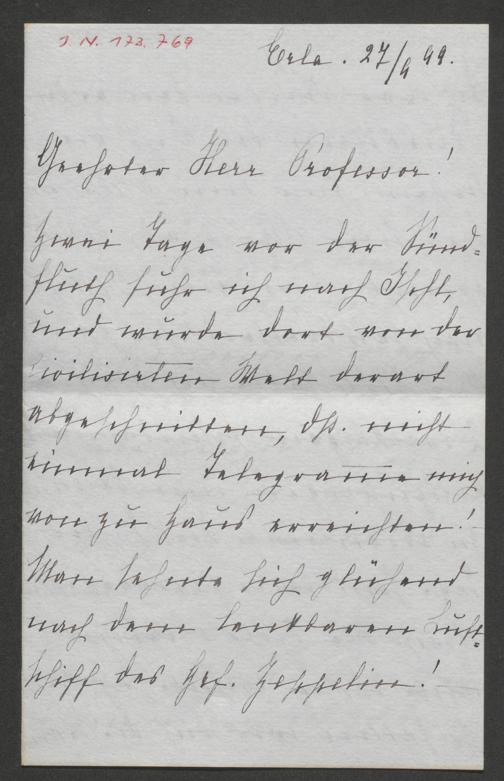 J. N. 173.769
Erla. 27/9 99.
Geehrter Herr Professor!
Zwei Tage vor der Sünd-
fluth fuhr ich nach Ischl,
und wurde dort von der
civilisirten Welt derart
abgeschnitten, dß. nicht
einmal Telegram̅e mich
von zu Haus erreichten!
Man sehnte sich glühend
nach dem lenkbaren Luft-
schiff des Grf. Zeppelin!